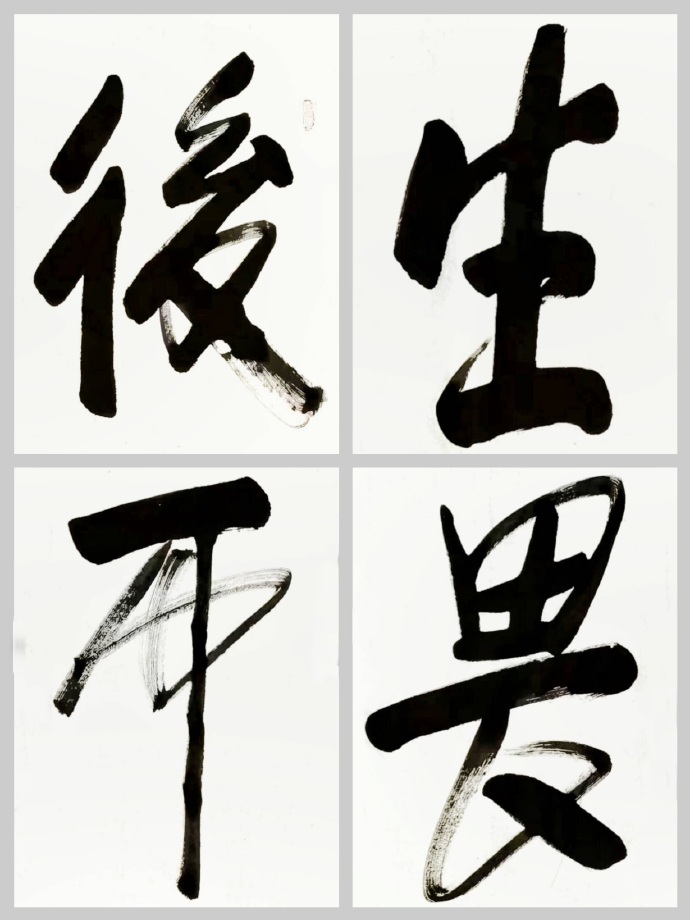 後生
可畏